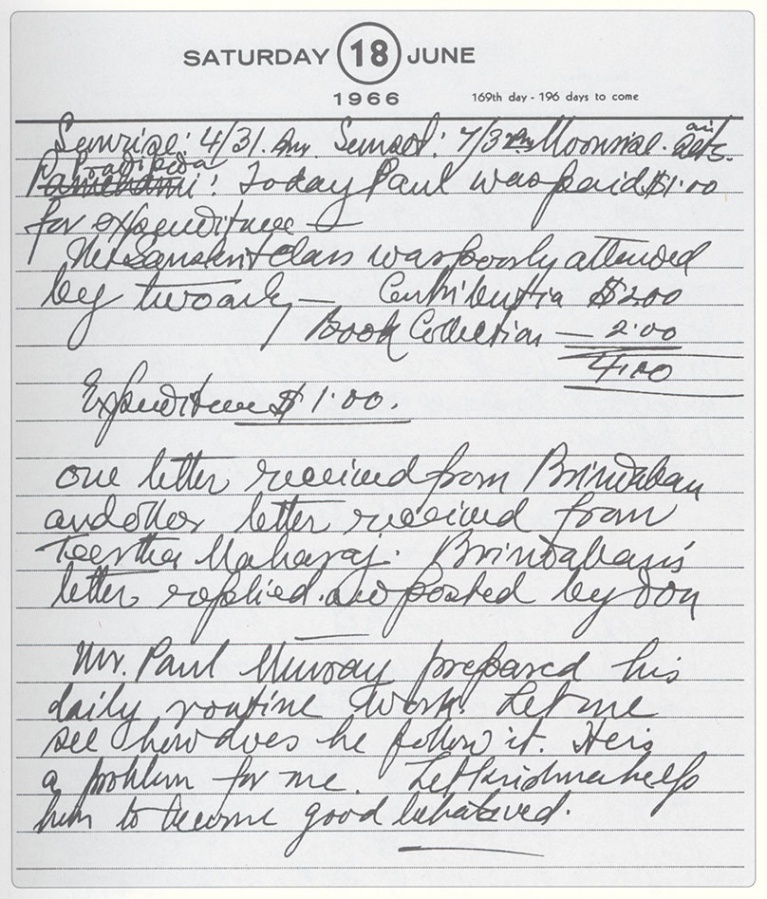 SATURDAY 18 JUNE
1966 169th day - 196 days to come
Sunrise: 4/31. Am. Sunset: 7/31 Pm Moonrise.
Pradipada
! Today Paul was paid $1.00
for expenditure —
The Sanskrit Class was poorly attended
by two only — Contribution $2.00
Book Collection — 2.00
4.00
Expenditure $ 1.00.
one letter received from Brindaban
and other letter received from
Teertha Maharaj. Brindaban's
letter replied and posted by Don
Mr. Paul Murray prepared his
daily routine work. Let me
see how does he follow it. He is
a problem for me. Let Krishna help
him to become good behaved.